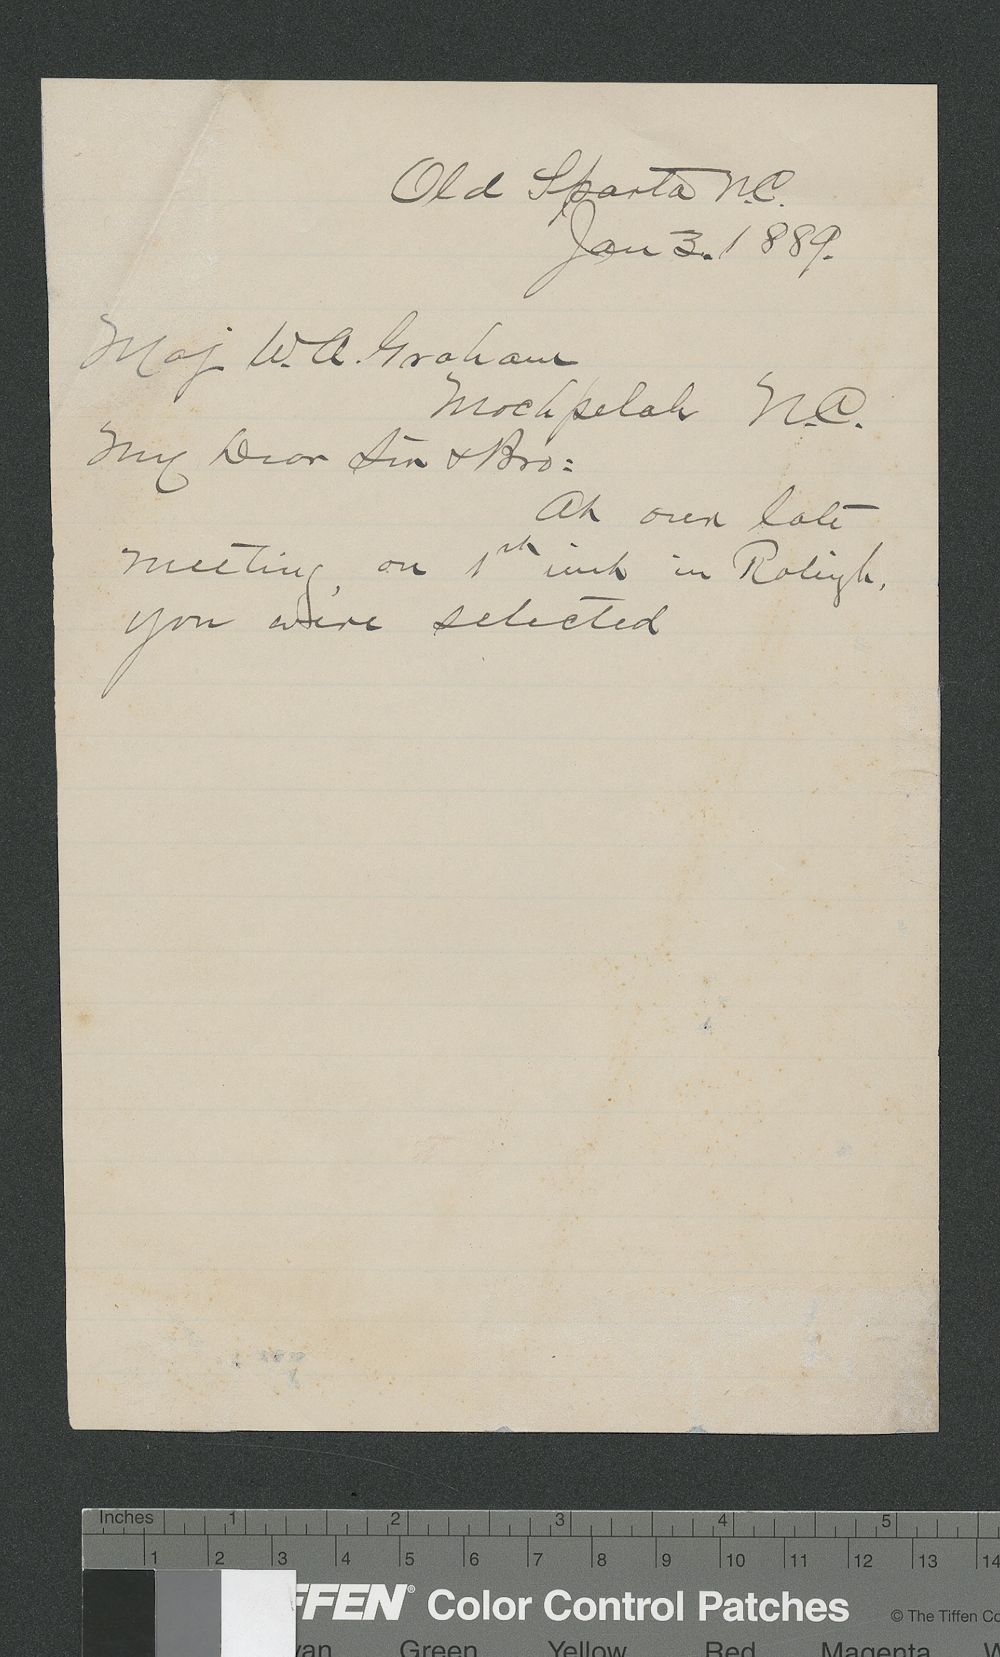 Old Sparta N.C.
Jan 3. 1889.
Maj W. A. Graham
Mochpelah N.C.
My Dear Sir & Bro:
At our late
meeting, on 1st inst in Raleigh,
you were selected
Inches 1 2 3 4 5
1 2 3 4 5 6 7 8 9 10 11 12 13 14
FFEN® Color Control Patches © The Tiffen Co
yan Green Yellow Red Magenta W